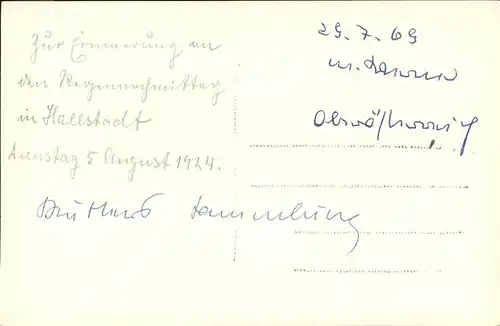 Zur Erinnerung an
den Regennachmittag
in Hallstadt
Dienstag 5 August 1924.
Sammlung
29.7.69